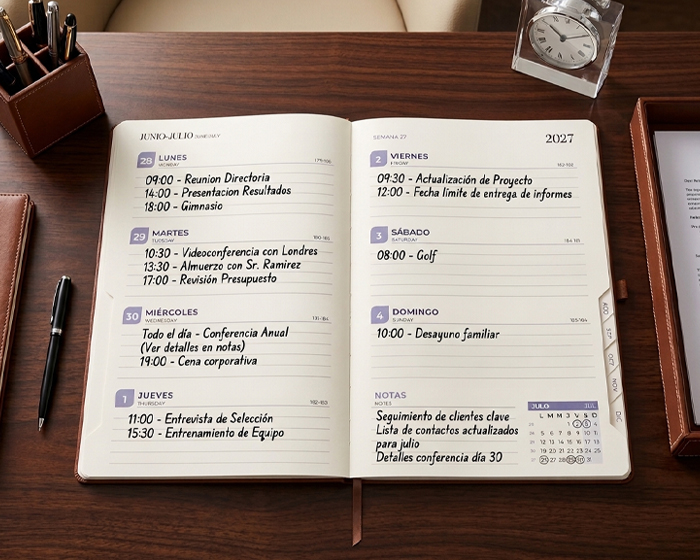 JUNIO-JULIO
28 LUNES
MONDAY
09:00 - Reunion Directoria
14:00 - Presentacion Resultados
18:00 - Gimnasio
29 MARTES
TUESDAY
10:30 - Videoconferencia con Londres
13:30 - Almuerzo con Sr. Ramirez
17:00 - Revisión Presupuesto
30 MIÉRCOLES
WEDNESDAY
Todo el día - Conferencia Anual
(Ver detalles en notas)
19:00 - Cena corporativa
1 JUEVES
THURSDAY
11:00 - Entrevista de Selección
15:30 - Entrenamiento de Equipo
SEMANA 27
2027
2 VIERNES
09:30 - Actualización de Proyecto
12:00 - Fecha límite de entrega de informes
3 SÁBADO
SATURDAY
08:00 - Golf
4 DOMINGO
SUNDAY
10:00 - Desayuno familiar
NOTAS
NOTES
Seguimiento de clientes clave
Lista de contactos actualizados
para julio
Detalles conferencia día 30
JULO JUL
L M M J V S D
1 2 3 4
5 6 7 8 9 10 11
12 13 14 15 16 17 18
19 20 21 22 23 24 25
AGO
SEP
OCT
NOV
DIC